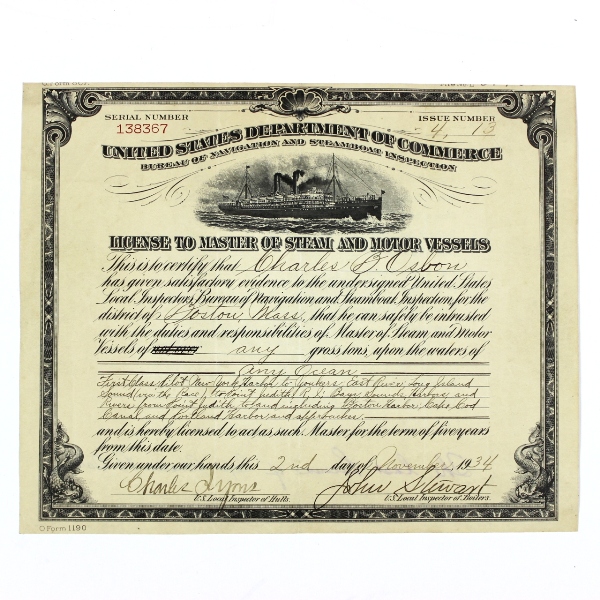 SERIAL NUMBER
138367
ISSUE NUMBER
4, 13
UNITED STATES DEPARTMENT OF COMMERCE
BUREAU OF NAVIGATION AND STEAMBOAT INSPECTION
LICENSE TO MASTER OF STEAM AND MOTOR VESSELS
This is to certify that Charles B. Osbon
has given satisfactory evidence to the undersigned United States
Local Inspectors, Bureau of Navigation and Steamboat Inspection, for the
district of Boston, Mass, that he can safely be intrusted
with the duties and responsibilities of Master of Steam and Motor
Vessels of any gross tons, upon the waters of
Any Ocean
First Class Pilot, New York Harbor to Yonkers, East River, Long Island
Sound (via the Race), to Point Judith R. I. Bays, Sounds, Harbors and
Rivers from Point Judith to and including Boston Harbor, Cape Cod
Canal and Portland Harbor and approaches.
and is hereby licensed to act as such Master for the term of five years
from this date.
Given under our hands this 2nd day of November, 1934
Charles Lyons John Stewart
U.S. Local Inspector of Hulls. U.S. Local Inspector of Boilers.
Form 1190